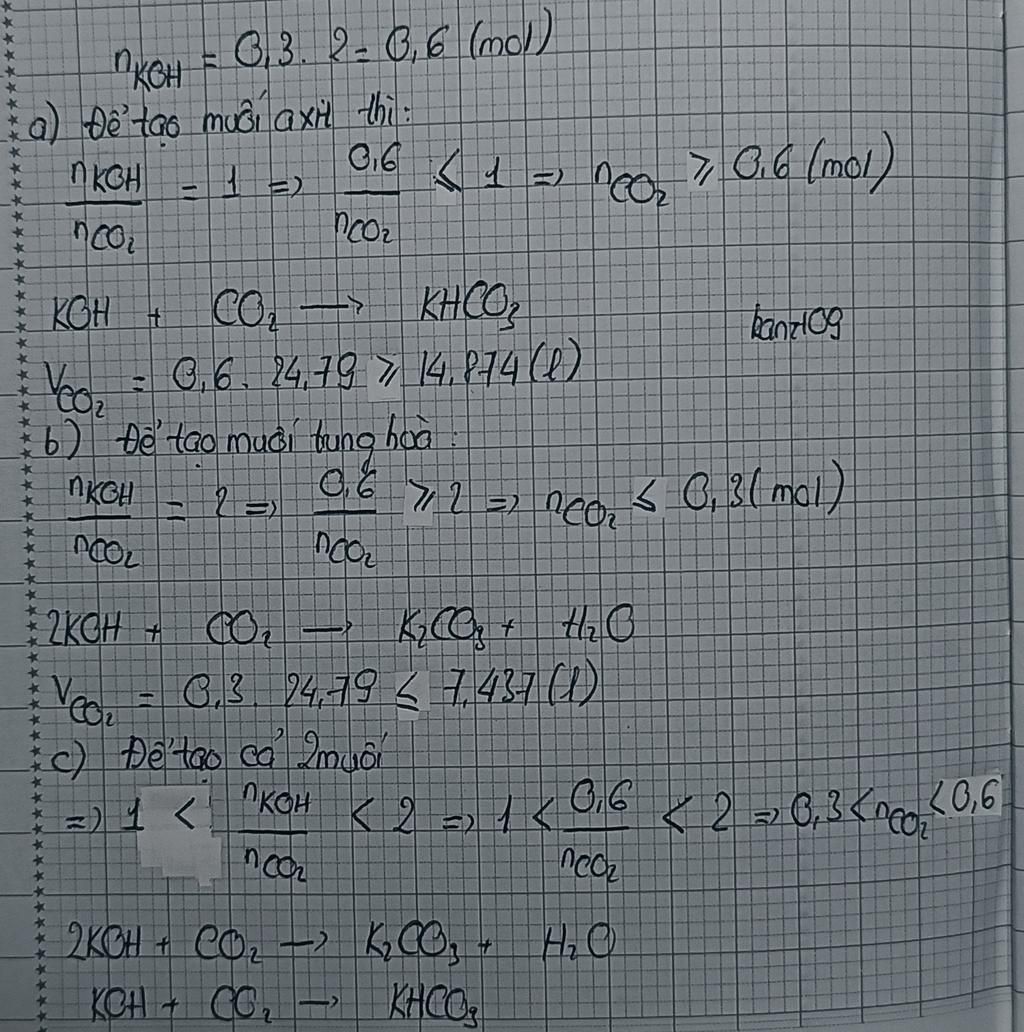 nKOH = 0,3. 2 = 0,6 (mol)
a) Để tạo muối axit thì:
nKOH/nCO₂ = 1 => 0,6/nCO₂ ≤ 1 => nCO₂ ≥ 0,6 (mol)
KOH + CO₂ → KHCO₃
VCO₂ = 0,6. 24,79 ≥ 14,874 (l)
b) Để tạo muối trung hoà:
nKOH/nCO₂ = 2 => 0,6/nCO₂ ≥ 2 => nCO₂ ≤ 0,3 (mol)
2KOH + CO₂ → K₂CO₃ + H₂O
VCO₂ = 0,3. 24,79 ≤ 7,437 (l)
c) Để tạo cả 2 muối
=> 1 < nKOH/nCO₂ < 2 => 1 < 0,6/nCO₂ < 2 => 0,3 < nCO₂ < 0,6
2KOH + CO₂ → K₂CO₃ + H₂O
KOH + CO₂ → KHCO₃